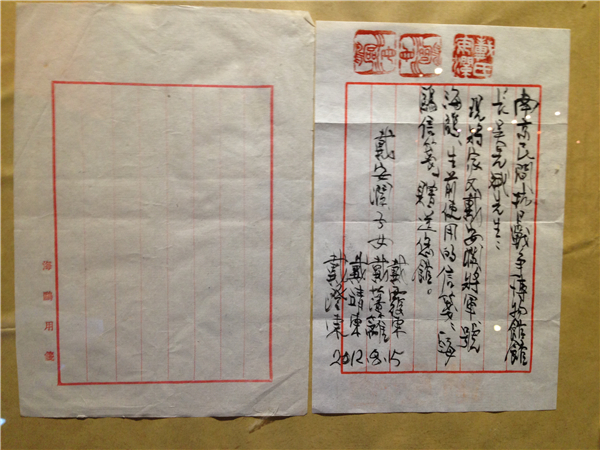 南京民間抗日戰争博物館館
长吴先斌先生：
现将家父戴安瀾將軍號
海鷗、生前使用的信箋、海
鷗信箋赠送您館。
戴安瀾子女
戴覆東
戴藩籬
戴靖東
戴澄東
2012.8.15
海鷗用箋